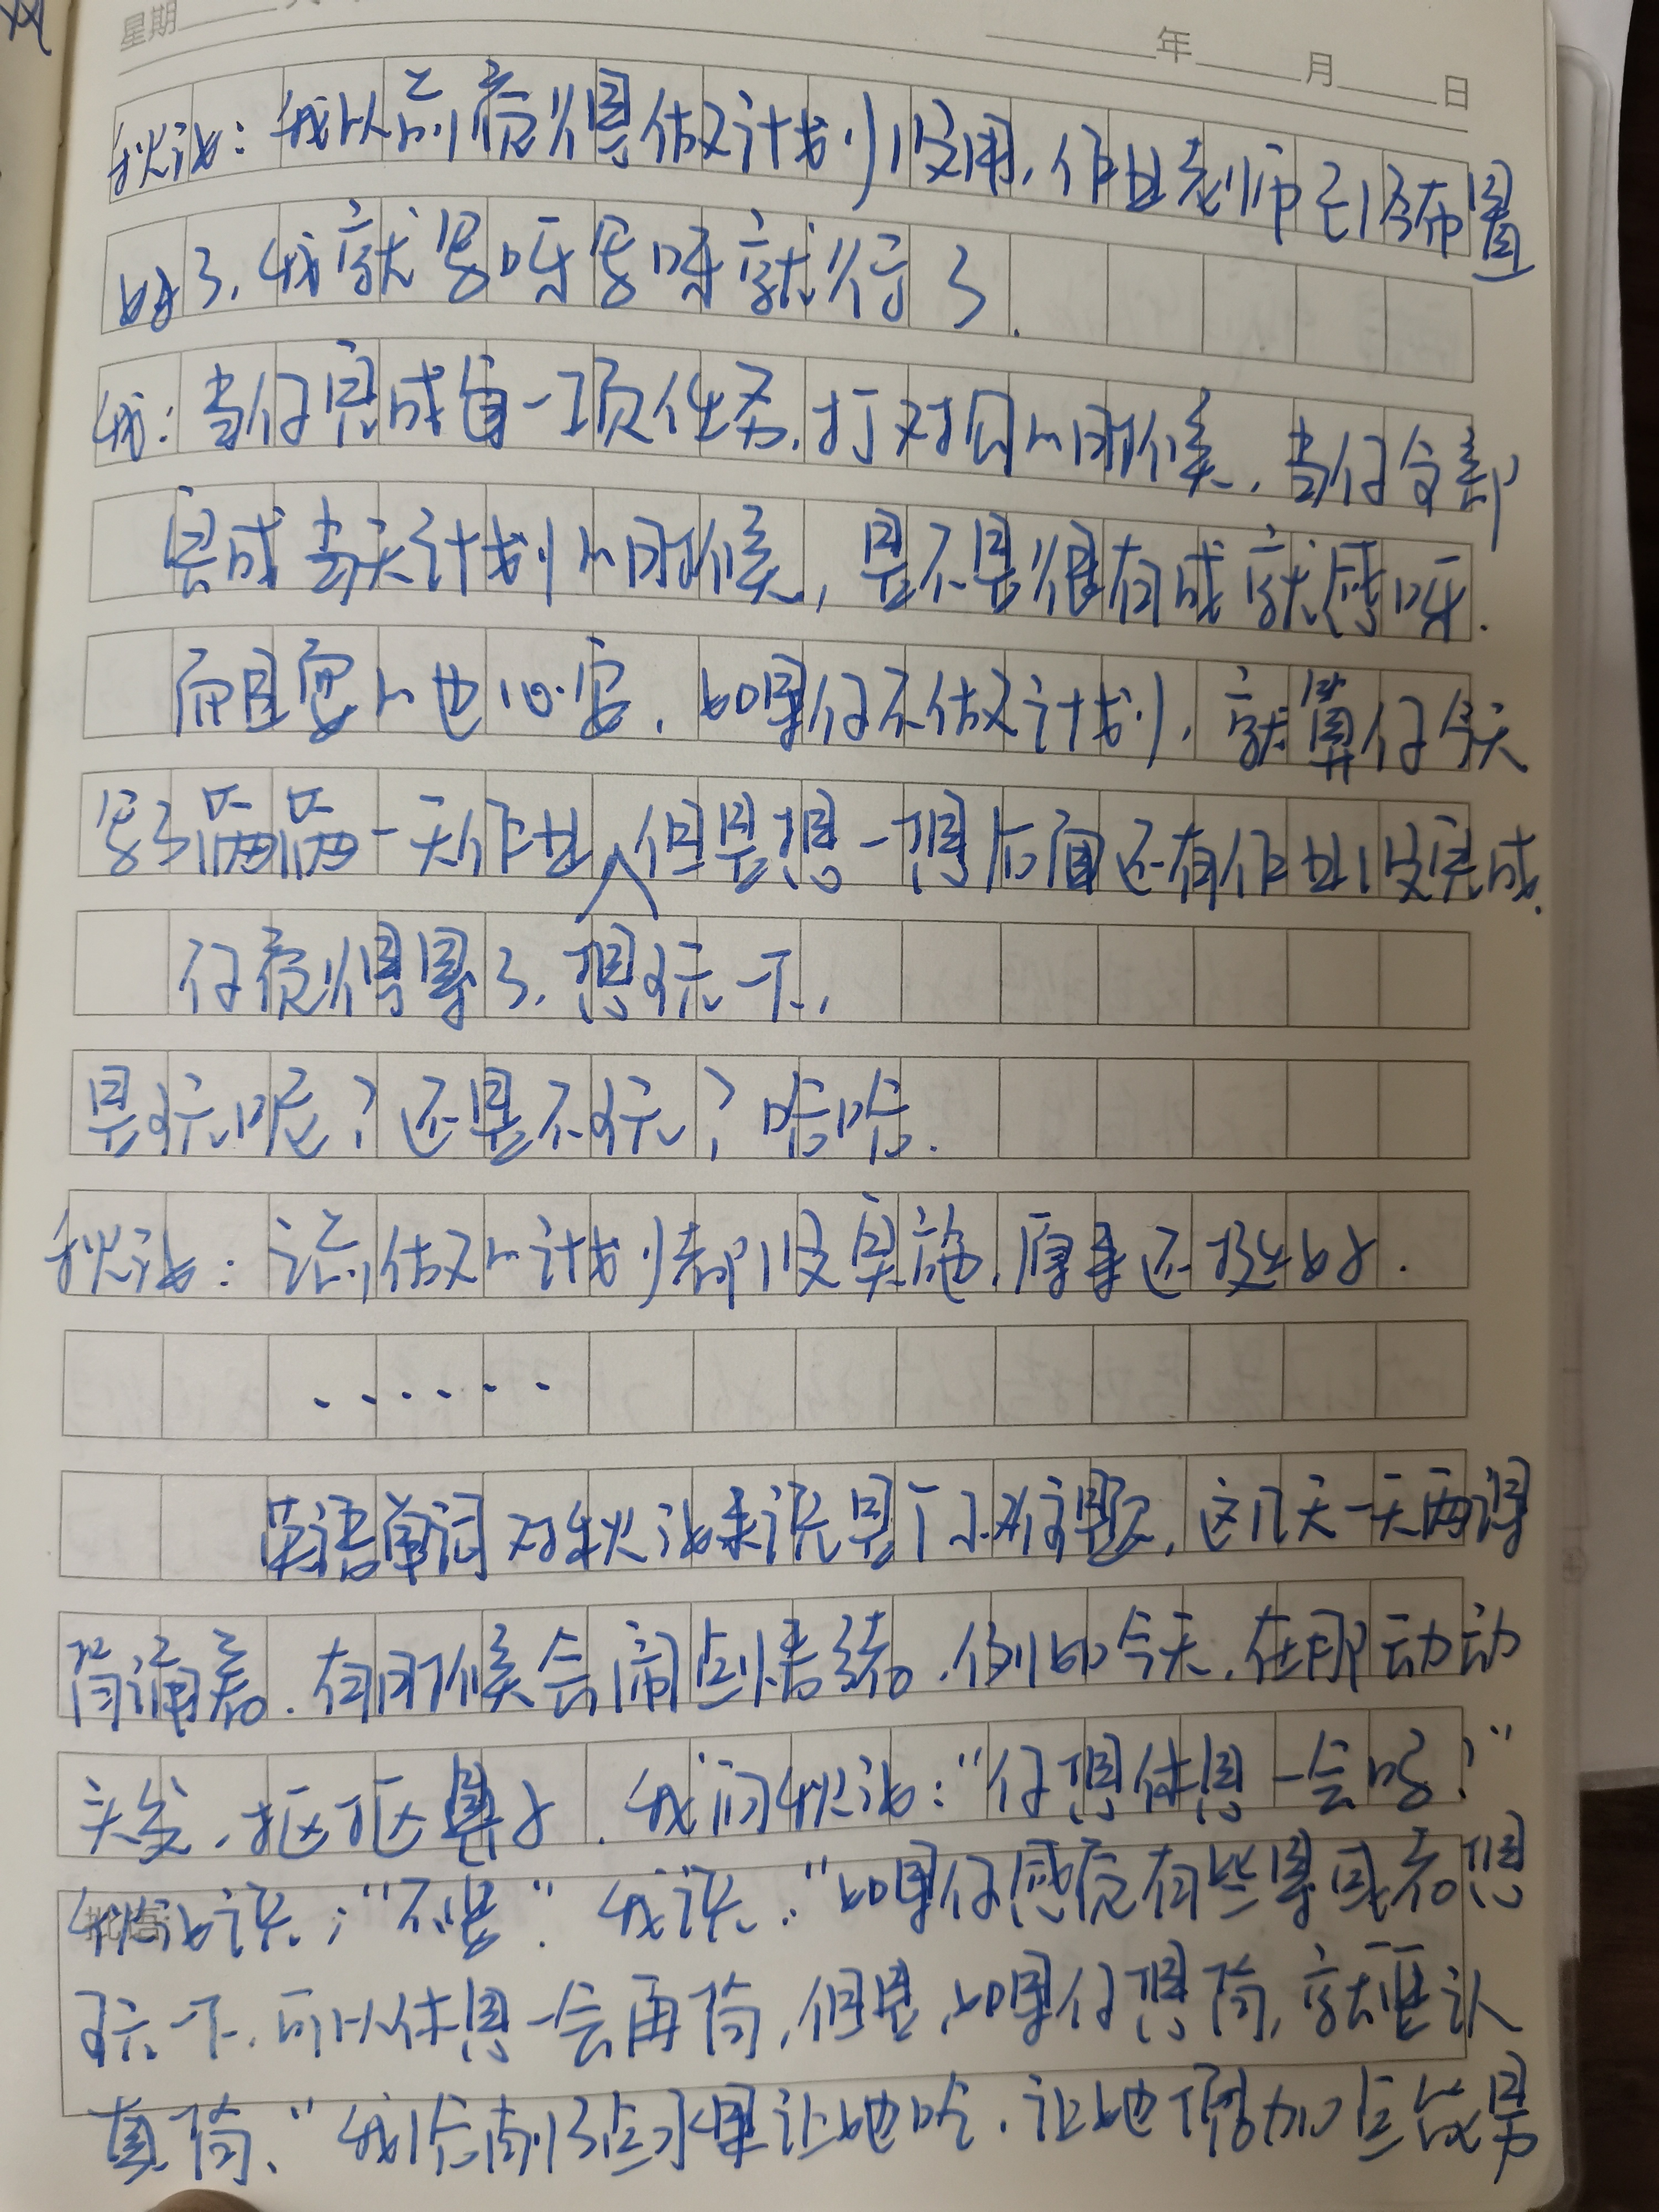 星期 年 月 日
秋汝：我以前觉得做计划没用，作业老师已经布置
好了，我就写呀写呀就行了.
我：当你完成每一项任务，打对勾的时候，当你全部
完成当天计划的时候，是不是很有成就感呀.
而且玩的也心安，如果你不做计划，就算你今天
写了满满一天作业，但是想一想后面还有作业没完成.
你觉得累了，想玩一下，
是玩呢？还是不玩？哈哈.
秋汝：以前做的计划都没实施，原来还挺好.
......
英语单词对秋汝来说是个小难题，这几天一天两课
背诵着.有时候会闹点情绪.例如今天，在那动动
头发，抠抠鼻子.我问秋汝：“你想休息一会吗？”
秋汝说：“不要”.我说：“如果你感觉有些累或者想
玩一下，可以休息一会再背，但是，如果你想背，就要认
真背、”我给削了点水果让她吃.让她增加点能量